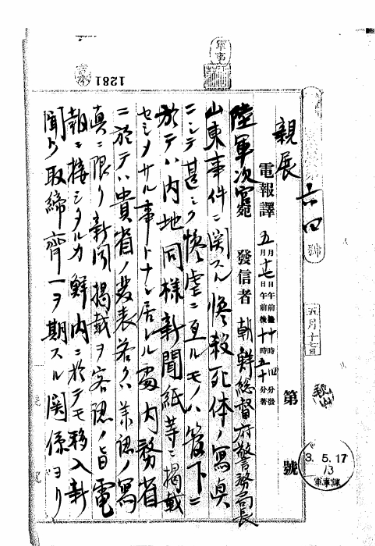 軍事
1281
親展
六四號
電報譯
五月十七日
第 號
五月 日午前 時 分發
五月十七日午後十時五十分著
3.5.17
軍事課
陸軍次官宛 發信者 朝鮮総督府警務局長
山東事件ニ関スル惨殺死体ノ寫真
ニシテ甚シク惨虐ニ亘ルモノハ管下ニ
於テハ内地同様新聞紙等ニ掲載
セシメサル事トナシ居レル處内務省
ニ於テハ貴省ノ発表若クハ承認ノ寫
真ニ限リ新聞掲載ヲ容認ノ旨電
報ニ接シタルカ鮮内ニ於テモ移入新
聞ノ取締齊一ヲ期スル関係ヨリ